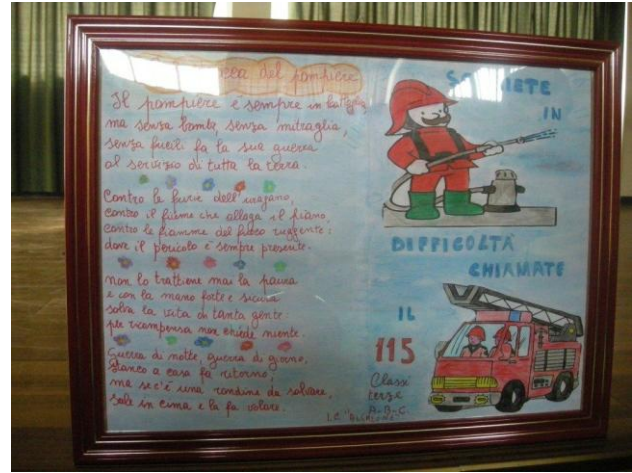 del pompiere
Il pompiere è sempre in battaglia
ma senza bomba, senza mitraglia,
senza fucili fa la sua guerra
al servizio di tutta la terra.
Contro la furia dell'uragano,
contro il fiume che allaga il piano,
contro le fiamme del fuoco ruggente:
dove il pericolo è sempre presente.
Non lo trattiene mai la paura
e con la mano forte e sicura
salva la vita di tanta gente
per ricompensa non chiede niente.
Guerra di notte, guerra di giorno,
stanco a casa fa ritorno,
ma se c'è una rondine da salvare,
sale in cima e la fa volare.
SIETE
IN
DIFFICOLTÀ
CHIAMATE
IL
115
Classi
terze
A-B-C.
I.C.